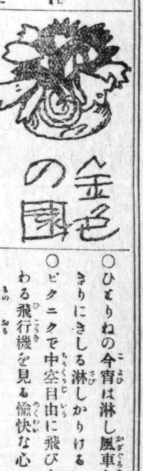 金色
の園
〇ひとりねの今宵は淋し風車
きりにきしる淋しかりける
〇ピクニクで中空自由に飛び
わる飛行機を見る愉快な心